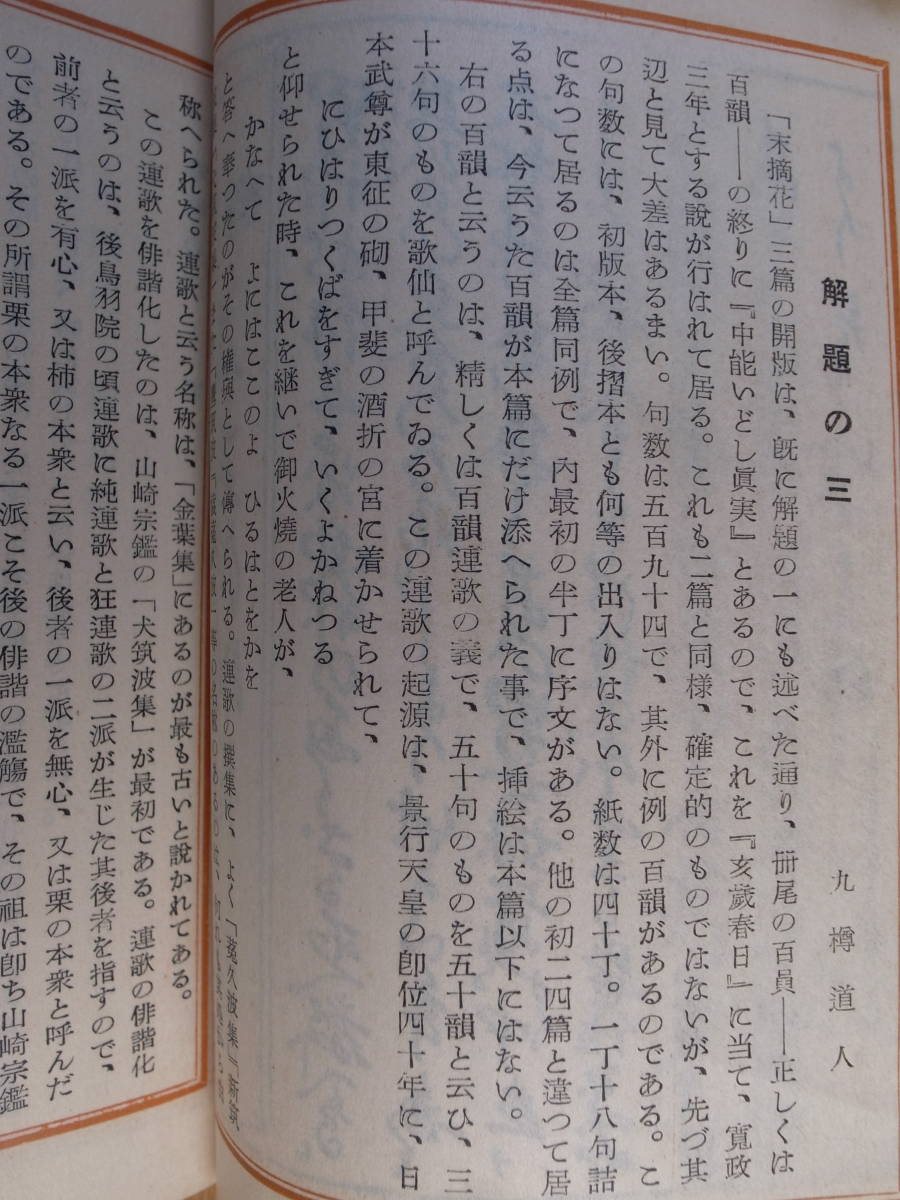 解題の三
九樽道人
「末摘花」三篇の開版は、既に解題の一にも述べた通り、冊尾の百員――正しくは
百韻――の終りに『中能いどし眞実』とあるので、これを『亥歲春日』に当て、寬政
三年とする説が行はれて居る。これも二篇と同様、確定的のものではないが、先づ其
辺と見て大差はあるまい。句数は五百九十四で、其外に例の百韻があるのである。こ
の句数には、初版本、後摺本とも何等の出入りはない。紙数は四十丁。一丁十八句詰
になつて居るのは全篇同例で、內最初の半丁に序文がある。他の初二四篇と違つて居
る点は、今云うた百韻が本篇にだけ添へられた事で、挿絵は本篇以下にはない。
右の百韻と云うのは、精しくは百韻連歌の義で、五十句のものを五十韻と云ひ、三
十六句のものを歌仙と呼んでゐる。この連歌の起源は、景行天皇の卽位四十年に、日
本武尊が東征の砌、甲斐の酒折の宮に着かせられて、
にひはりつくばをすぎて、いくよかねつる
と仰せられた時、これを継いで御火燒の老人が、
かなへて よにはここのよ ひるはとをかを
と答へ奉つたのがその権輿として傳へられる。連歌の撰集に、よく「菟久波集」「新筑
称へられた。連歌と云う名称は、「金葉集」にあるのが最も古いと說かれてある。
この連歌を俳諧化したのは、山崎宗鑑の「犬筑波集」が最初である。連歌の俳諧化
と云うのは、後鳥羽院の頃連歌に純連歌と狂連歌の二派が生じた其後者を指すので、
前者の一派を有心、又は柿の本衆と云い、後者の一派を無心、又は栗の本衆と呼んだ
のである。その所謂栗の本衆なる一派こそ後の俳諧の濫觴で、その祖は卽ち山崎宗鑑